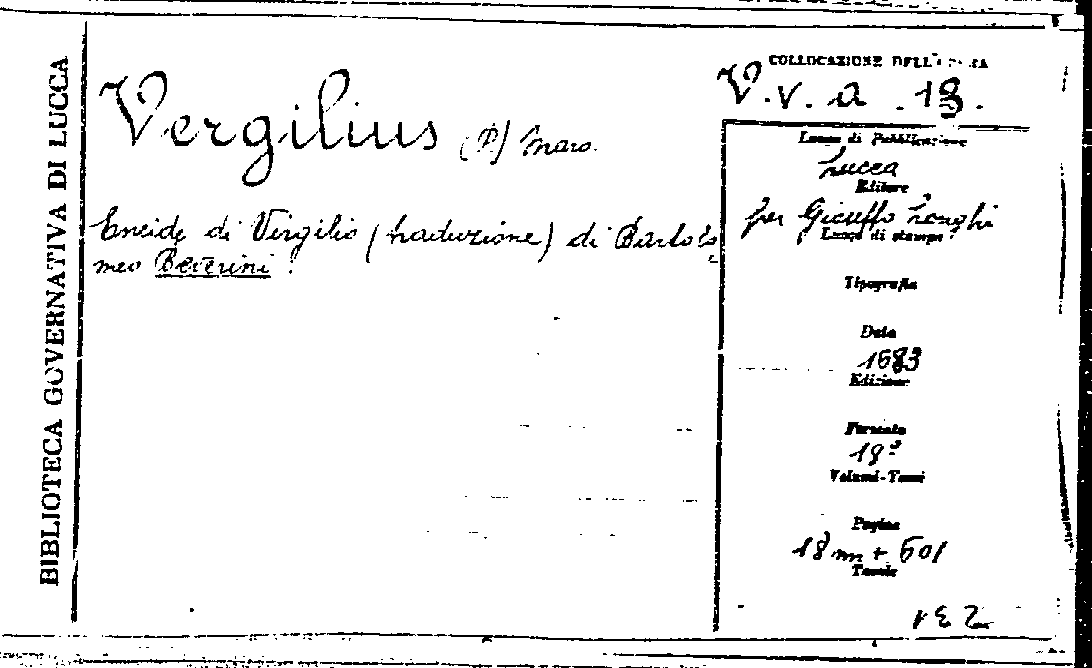 BIBLIOTECA GOVERNATIVA DI LUCCA
Vergilius (P) Maro.
Eneide di Virgilio (traduzione) di Bartolo
meo Beverini.
COLLOCAZIONE DELL'
V.v. a . 13.
Luogo di Pubblicazione
Lucca
Editore
per
Luogo di stampa
Tipografia
Data
1683
Edizione
Formato
18º
Volumi-Tomi
Pagine
18 nn + 601
Tavole